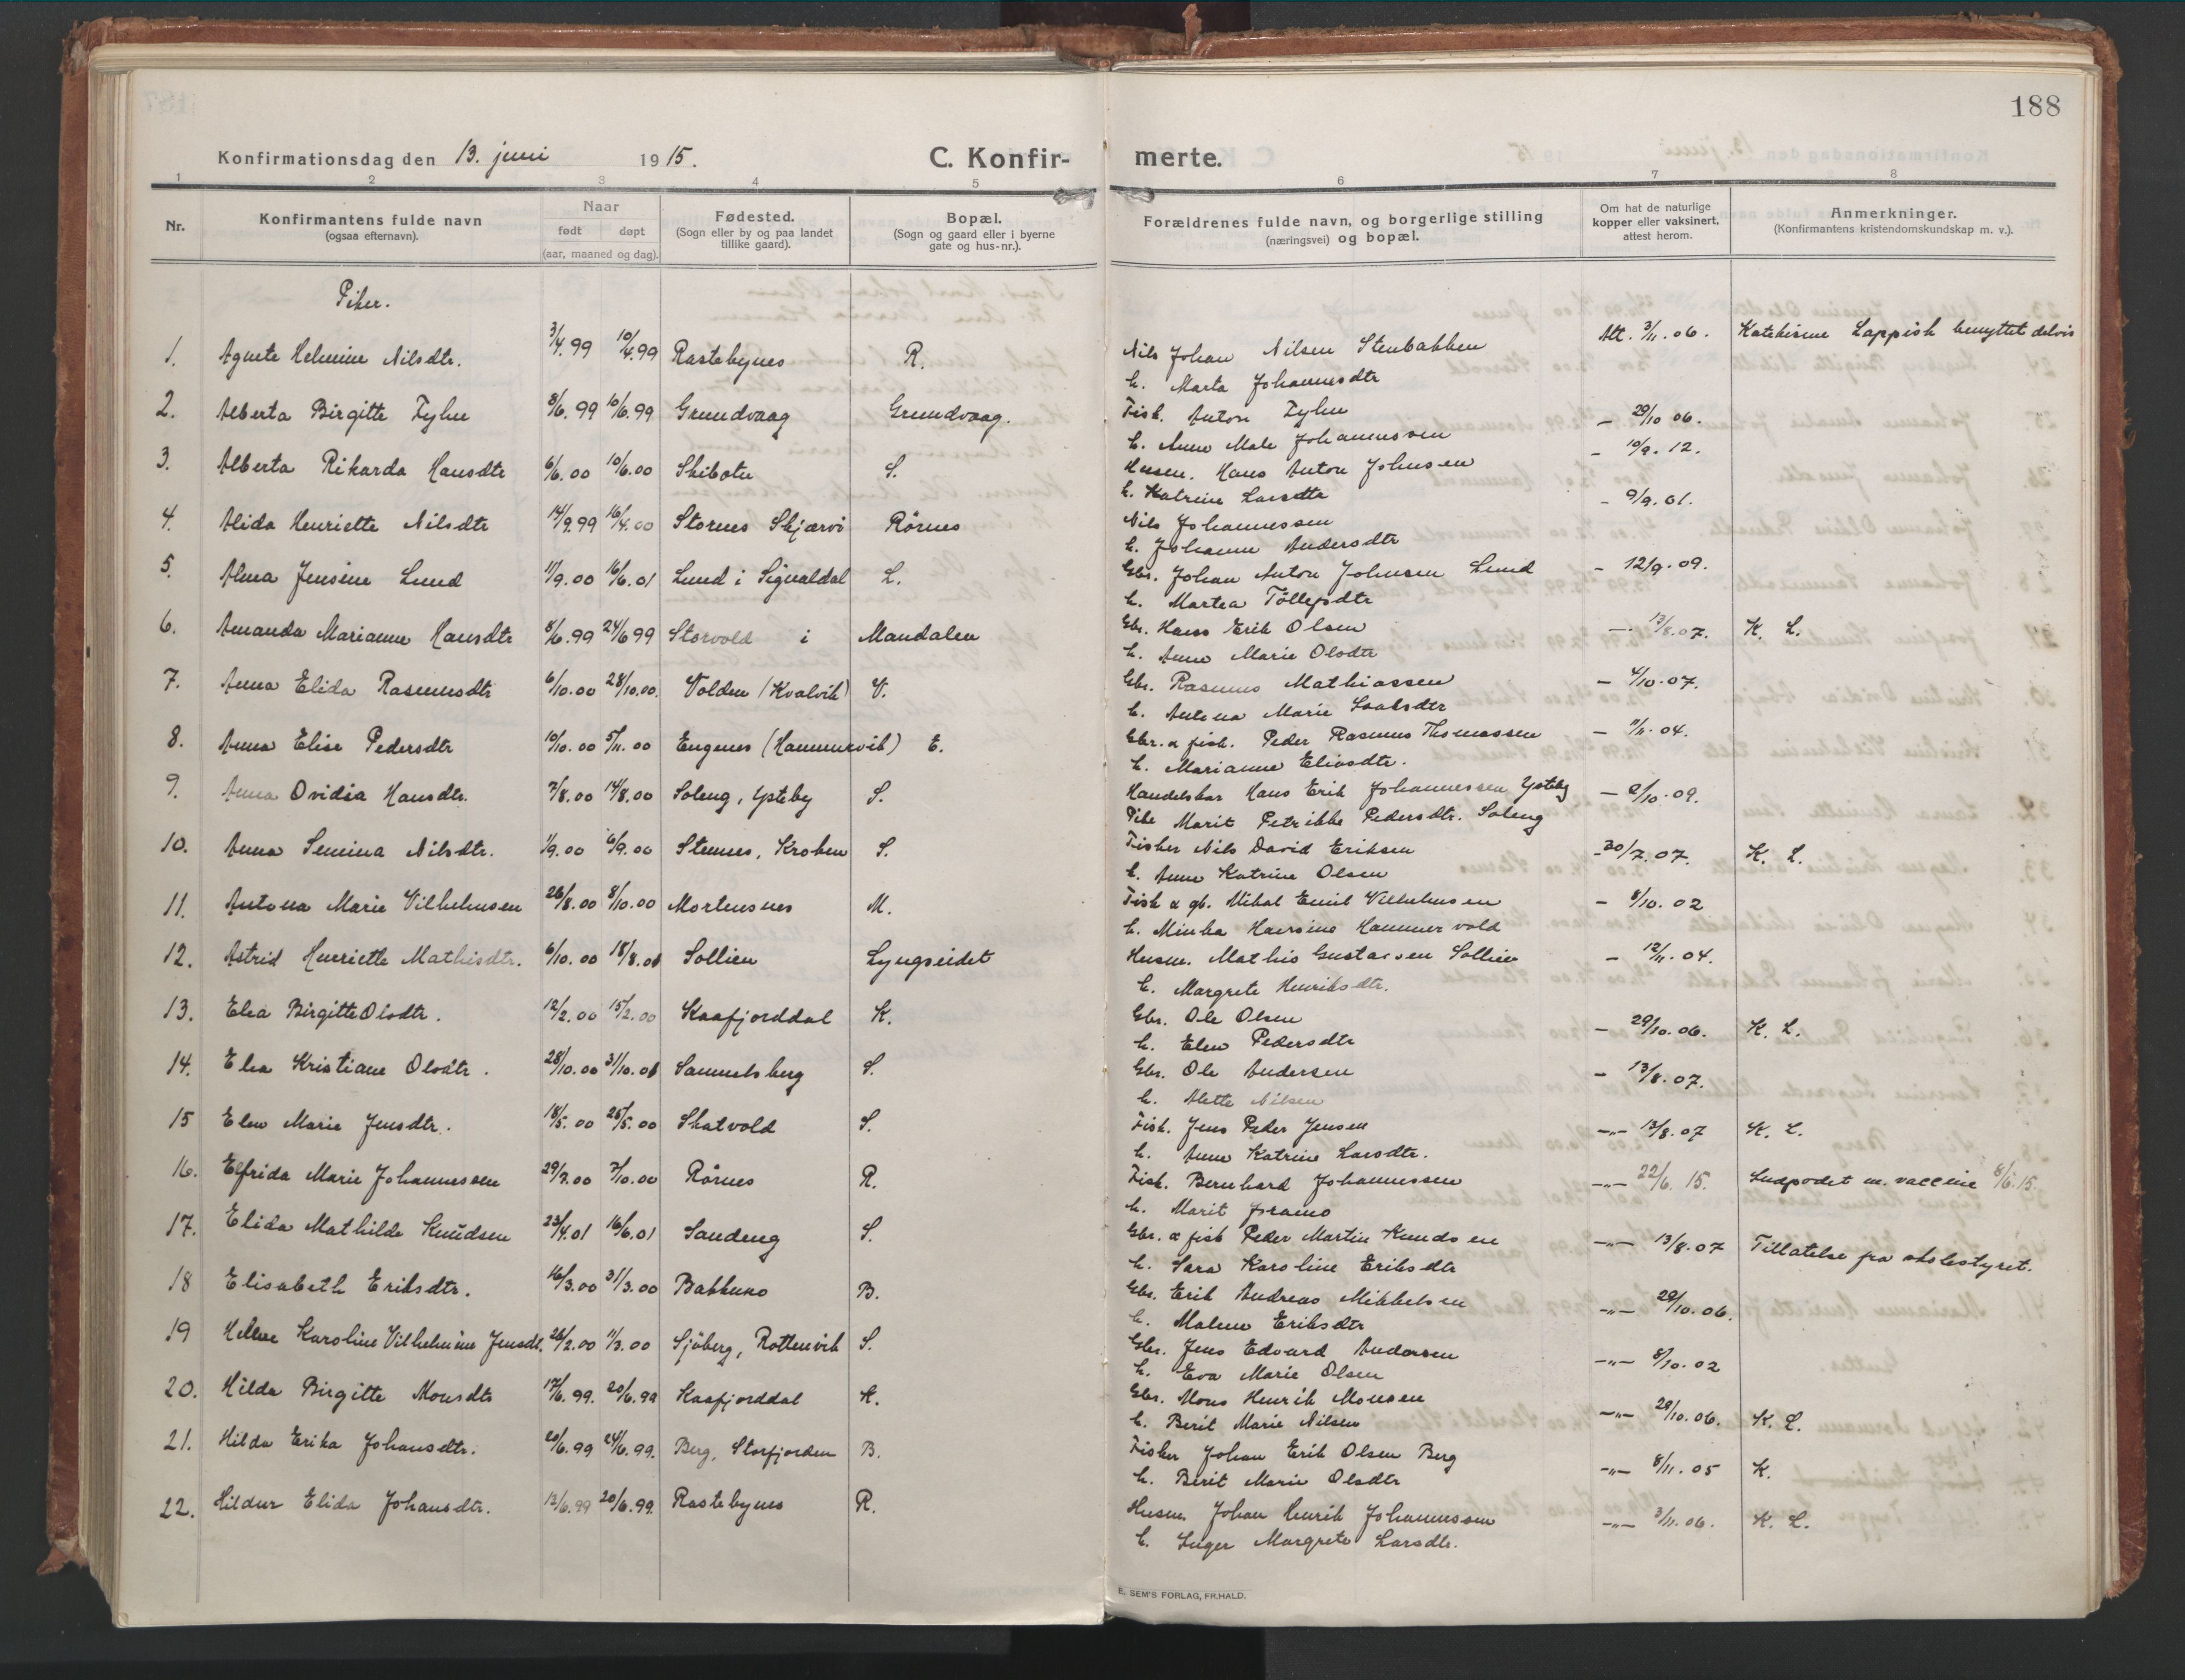 188
Konfirmationsdag den 13. juni 1915.
C. Konfir-
merte.
1 2 3 4 5 6 7 8
Nr.
Konfirmantens fulde navn
(ogsaa efternavn).
Naar
født døpt
(aar, maaned og dag).
Fødested.
(Sogn eller by og paa landet
tillike gaard).
Bopæl.
(Sogn og gaard eller i byerne
gate og hus-nr.).
Forældrenes fulde navn, og borgerlige stilling
(næringsvei) og bopæl.
Om hat de naturlige
kopper eller vaksinert,
attest herom.
Anmerkninger.
(Konfirmantens kristendomskundskap m. v.).
Piker.
1. Agnete Helmine Nilsdtr. 3/4.99 10/4.99 Rastebynes R. Nils Johan Nilsen Stenbakken Att. 3/11.06. Katekisme Lappisk benyttet delvis
h. Marta Johannesdtr
2. Alberta Birgitte Fyhn 8/6.99 10/6.99 Grundvaag Grundvaag. Fisk. Anton Fyhn — 29/10 06.
h. Anne Male Johannessen
3. Alberta Rikarda Hansdtr 6/6.00 10/6.00 Skibotn S. Husm. Hans Anton Johnsen — 10/9.12.
h. Katrine Larsdtr
4. Alida Henriette Nilsdtr 14/9.99 16/4.00 Stornes Skjærvö Rörnes Nils Johannessen — 9/9.01.
h. Johanne Andersdtr
5. Alma Jensine Lund 11/9.00 16/6.01 Lund i Signaldal L. Gbr. Johan Anton Johnsen Lund — 12/9.09.
h. Martea Töllefsdtr
6. Amanda Marianne Hansdtr 8/6.99 24/6 99 Storvold i Mandalen Gbr. Hans Erik Olsen — 13/8.07. K. L.
h. Anne Marie Olsdtr
7. Anna Elida Rasmusdtr 6/10.00 28/10.00. Volden (Kvalvik) V. Gbr. Rasmus Mathiassen — 4/10.07.
h. Antona Marie Isaksdtr
8. Anna Elise Pedersdtr 10/10.00 5/11.00 Engenes (Hammervik) E. Gbr. & fisk. Peder Rasmus Thomassen — 11/11.04.
h. Marianne Eliasdtr.
9. Anna Ovidia Hansdtr. 7/8.00 14/8.00 Soleng, Ysteby S. Handelskar Hans Erik Johannessen Ysteby — 2/10.09.
Pike Marit Petrikke Pedersdtr. Soleng
10. Anna Semina Nilsdtr. 1/9.00 6/9.00 Stennes, Kroken S. Fisker Nils David Eriksen — 30/7.07. K. L.
h. Anne Katrine Olsen
11. Antona Marie Vilhelmsen 26/8.00 8/10.00 Mortensnes M. Fisk & gb. Mikal Emil Vilhelmsen — 8/10.02
h. Minka Hansine Hammervold
12. Astrid Henriette Mathisdtr. 6/10.00 18/8.01 Sollien Lyngseidet Husm. Mathis Gustavsen Sollien — 12/11.04.
h. Margrete Henriksdtr.
13. Elea Birgitte Olsdtr. 12/2.00 15/2.00 Kaafjorddal K. Gbr. Ole Olsen — 29/10.06. K. L.
h. Elen Pedersdtr
14. Elea Kristiane Olsdtr. 28/10.00 31/10.00 Samuelsberg S. Gbr. Ole Andersen — 13/8.07.
h. Alette Nilsen
15 Elen Marie Jensdtr. 18/5.00 25/5.00 Skatvold S. Fisk. Jens Peder Jensen —"— 13/8.07 K. L.
h. Anne Katrine Larsdtr.
16. Elfrida Marie Johannessen 29/9.00 7/10.00 Rörnes R. Fisk. Bernhard Johannessen —"— 22/6.15. Indpodet m. vaccine 8/6.15.
h. Marit
17. Elida Mathilde Knudsen 23/4.01 16/6.01 Sandeng S. Gbr. & fisk Peder Martin Knudsen —"— 13/8.07 Tillatelse fra skolestyret.
h. Sara Karoline Eriksdtr
18 Elisabeth Eriksdtr. 16/3.00 31/3.00 Bakkemo B. Gbr. Erik Andreas Mikkelsen —"— 29/10.06.
h. Malene Eriksdtr
19 Karoline Vilhelmine Jensdt. 26/2.00 11/3.00 Sjöberg, Rottenvik S. Gbr. Jens Edvard Andersen —"— 8/10.02
h. Eva Marie Olsen
20. Hilda Birgitte Monsdtr 17/6.99. 20/6.99 Kaafjorddal K. Gbr. Mons Henrik Monsen —"— 29/10.06. K. L.
h. Berit Marie Nilsen
21. Hilda Erika Johansdtr. 20/6.99 24/6.99. Berg, Storfjorden B. Fisker Johan Erik Olsen Berg —"— 8/11.05 K.
h. Berit Marie Olsdtr
22. Hildur Elida Johansdtr. 12/6.99 20/6.99. Rastebynes R. Husm. Johan Henrik Johannessen —"— 3/11.06. K. L.
h. Inger Margrete Larsdtr.
E. SEM'S FORLAG, FR.HALD.